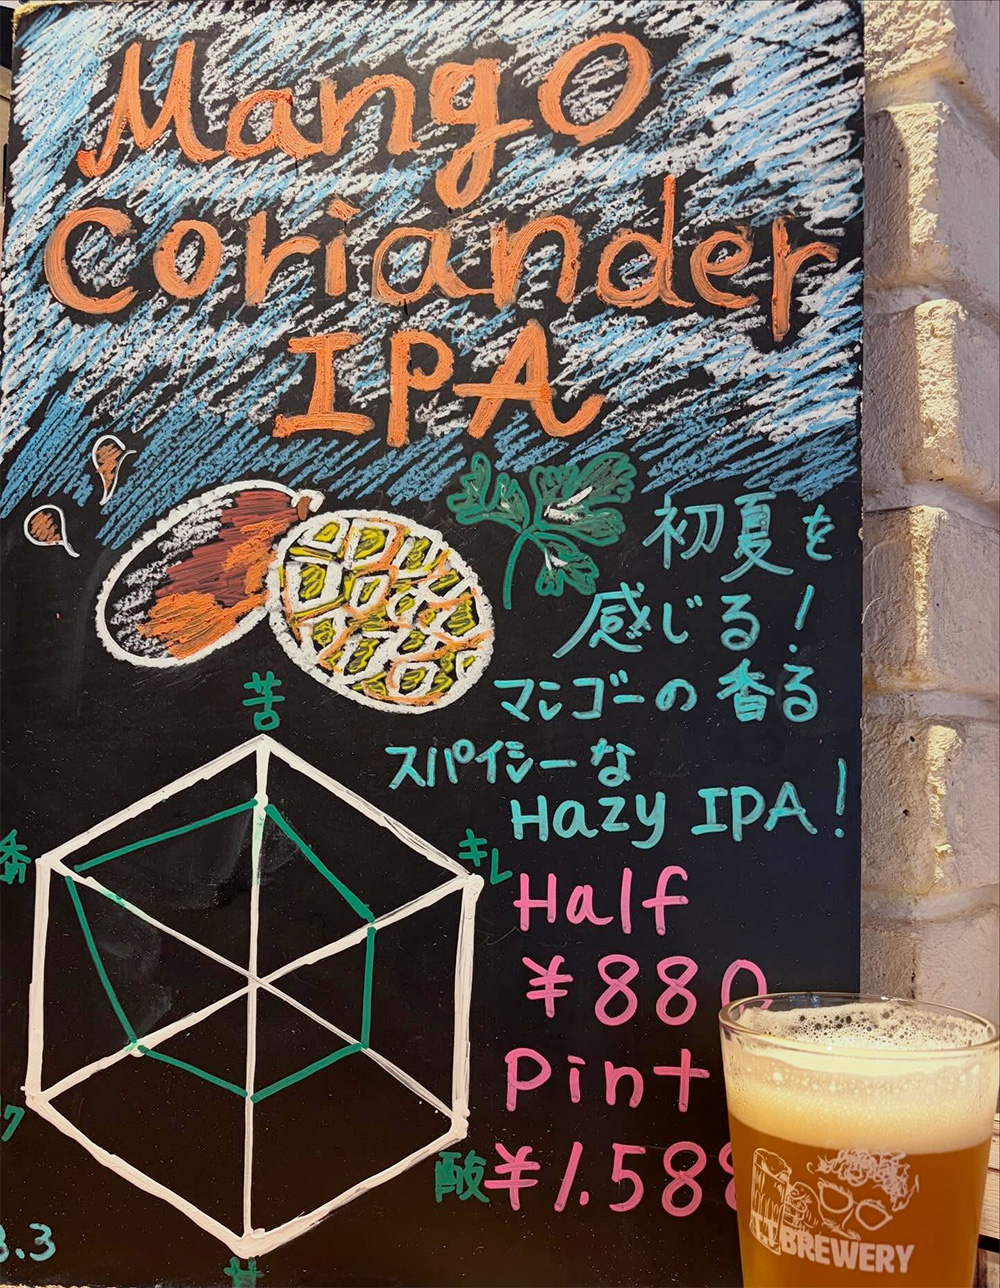 Mango
Coriander
IPA
初夏を
感じる!
マンゴーの香る
スパイシーな
Hazy IPA!
苦
キレ
香
酸
甘
Half
¥880
Pint
¥1.58
.3
BREWERY